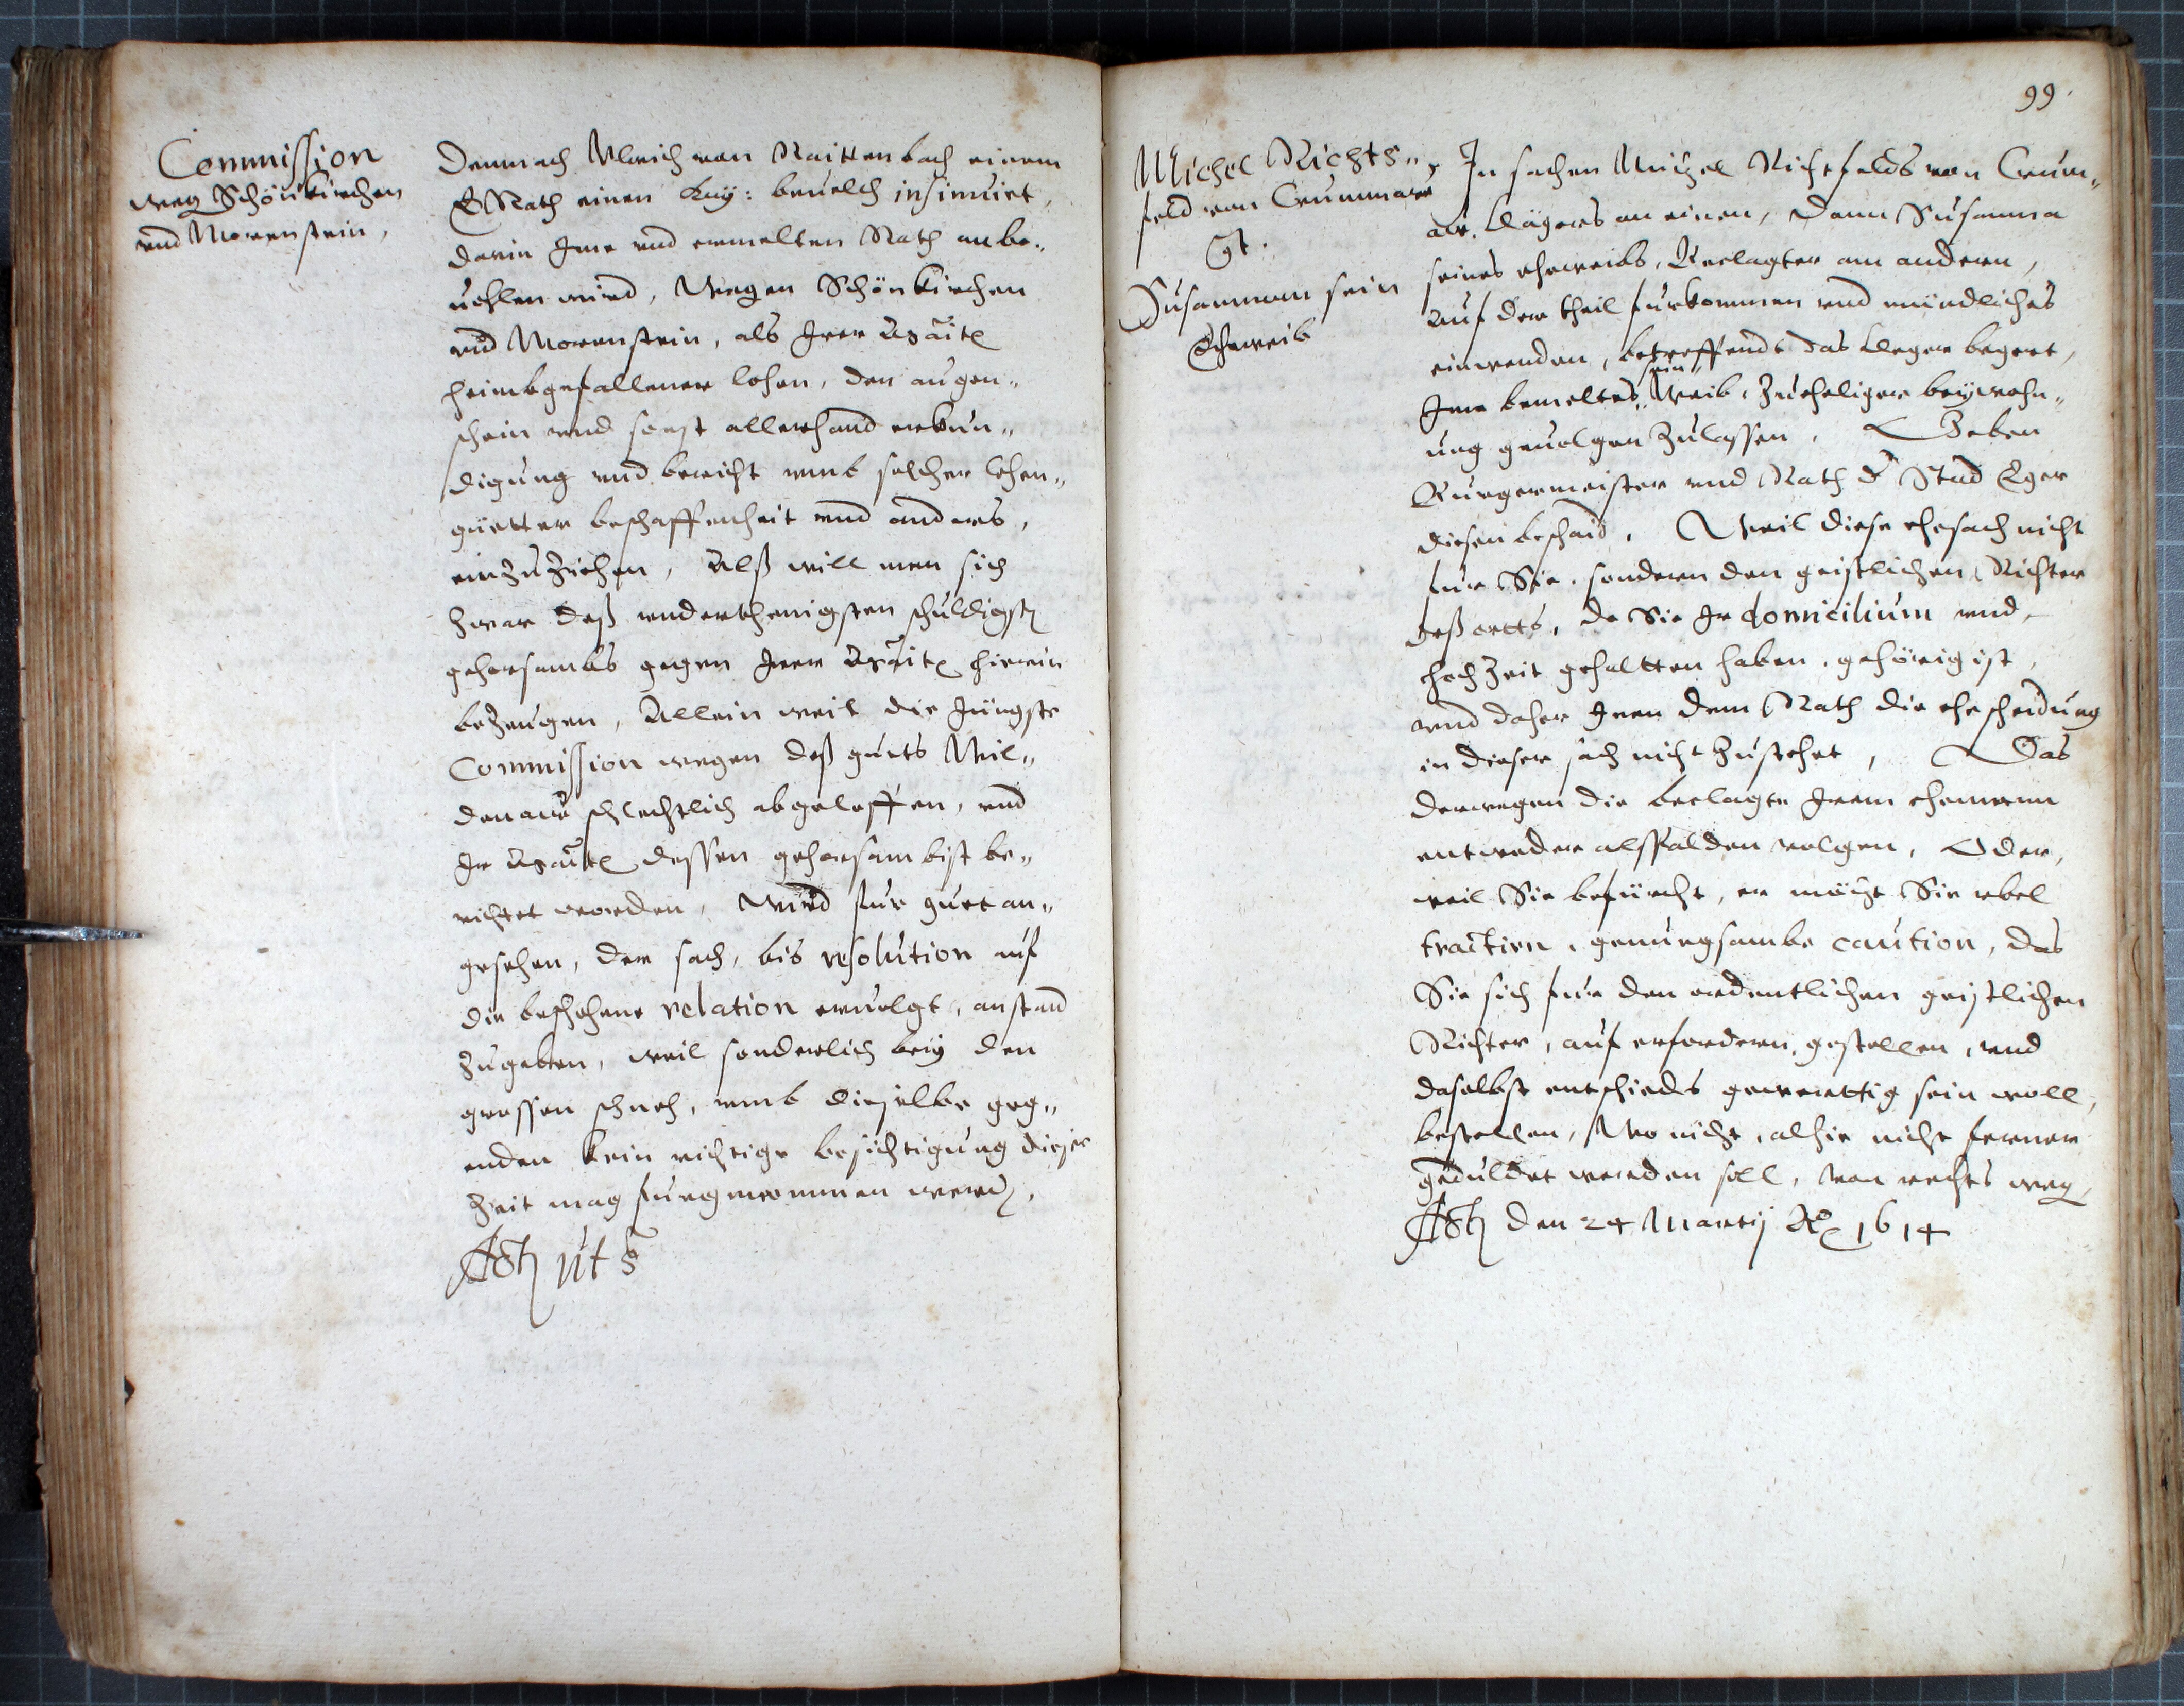 Commission
weg Schönkirchen
vnd Morenstein,
Demnach Vlrich von Raittenbach einem
E Rath einen Kay: beuelch insinuirt,
darin Jme vnd ermelten Rath anbe„
uohlen wird, Wegen Schönkirchen
vnd Morenstein, als Jrer Maitt
heimbgefallener lehen, den augen„
schein vnd sonst allerhand erkun„
digung vnd bericht vmb solcher lehen„
güetter beschaffenheit vnd anders,
einzuziehen, Alß will man sich
zwar deß vnderthenigsten schuldigst
gehorsambs gegen Jrer Maitt hierin
bezeugen, Allein weil die Jüngste
Commission wegen deß guets Wil„
denaw schlechtlich abgeloffen, vnd
Jr Maitt dessen gehorsambist be„
richtet worden, Wird für guet an„
gesehen, der sach, bis resolution auf
die beschehene relation eruolgt, anstand
zugeben, weil sonderlich bey den
grossen schneh, vmb dieselbe geg„
enden kein richtige besichtigung dieser
Zeit mag furgenommen werd,
Act ut s
99
Michel Richts„
feld von Crummaw
Ct.
Susannam sein
Eheweib
In sachen Michel Richtfelds von Crum„
aw, klägers an einen, dann Susanna
seines eheweibs, Beclagter am andern,
Auf der theil furkommen vnd mündliches
einwenden, betreffendt das kleger begert,
Jme bemeltes sein Weib, zu eheliger beywohn„
ung geuolgen zulassen, Geben
Burgermeister vnd Rath d Stad Eger
diesen beschaid, Weil diese ehesach nicht
für Sie, sondern den geistlichen Richter
deß ortts, da Sie Jr domicilium vnd
hochzeit gehaltten haben, gehörig ist,
vnd daher Jnen dem Rath die ehescheidung
in dieser sach nicht zustehet, Das
derwegen die beclagte Jrem ehemann
entweder alßbalden volgen, Oder,
weil Sie befürcht, er möcht Sie vbel
tractirn, genuegsambe caution, das
Sie sich für den ordentlichen geistlichen
Richter, auf erfordern, gestellen, vnd
daselbst entschieds gewerttig sein woll,
bestellen, Wo nicht, alhie nicht ferner
geduldet werden soll, Von rechts weg
Act den 24 Martij Ao 1614